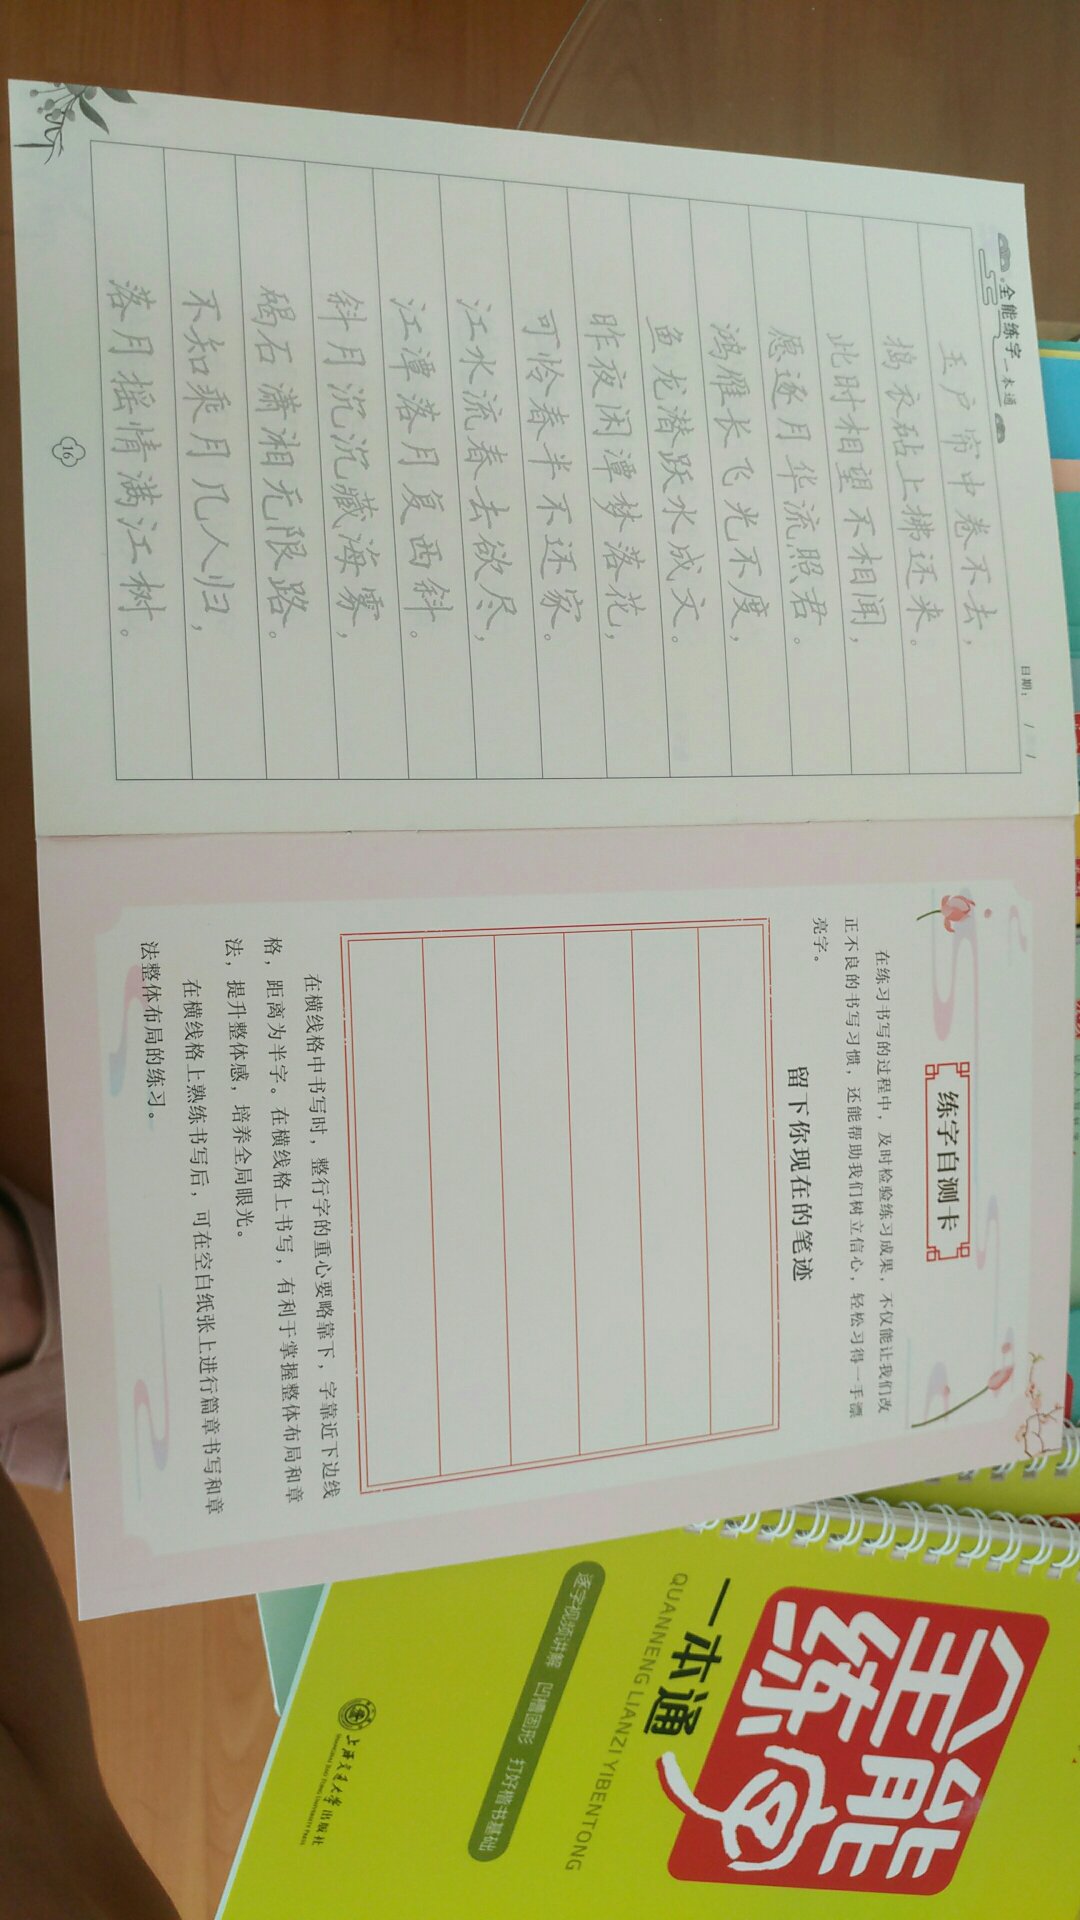 全能练字一本通
日期： / /
玉户帘中卷不去，
捣衣砧上拂还来。
此时相望不相闻，
愿逐月华流照君。
鸿雁长飞光不度，
鱼龙潜跃水成文。
昨夜闲潭梦落花，
可怜春半不还家。
江水流春去欲尽，
江潭落月复西斜。
斜月沉沉藏海雾，
碣石潇湘无限路。
不知乘月几人归，
落月摇情满江树。
16
练字自测卡
在练习书写的过程中，及时检验练习成果，不仅能让我们改
正不良的书写习惯，还能帮助我们树立信心，轻松习得一手漂
亮字。
留下你现在的笔迹
在横线格中书写时，整行字的重心要略靠下，字靠近下边线
格，距离为半字。在横线格上书写，有利于掌握整体布局和章
法，提升整体感，培养全局眼光。
在横线格上熟练书写后，可在空白纸张上进行篇章书写和章
法整体布局的练习。
全能
练字
一本通
QUANNENG LIANZI YIBENTONG
逐字视频讲解 凹槽固形 打好楷书基础
上海交通大学出版社
SHANGHAI JIAO TONG UNIVERSITY PRESS